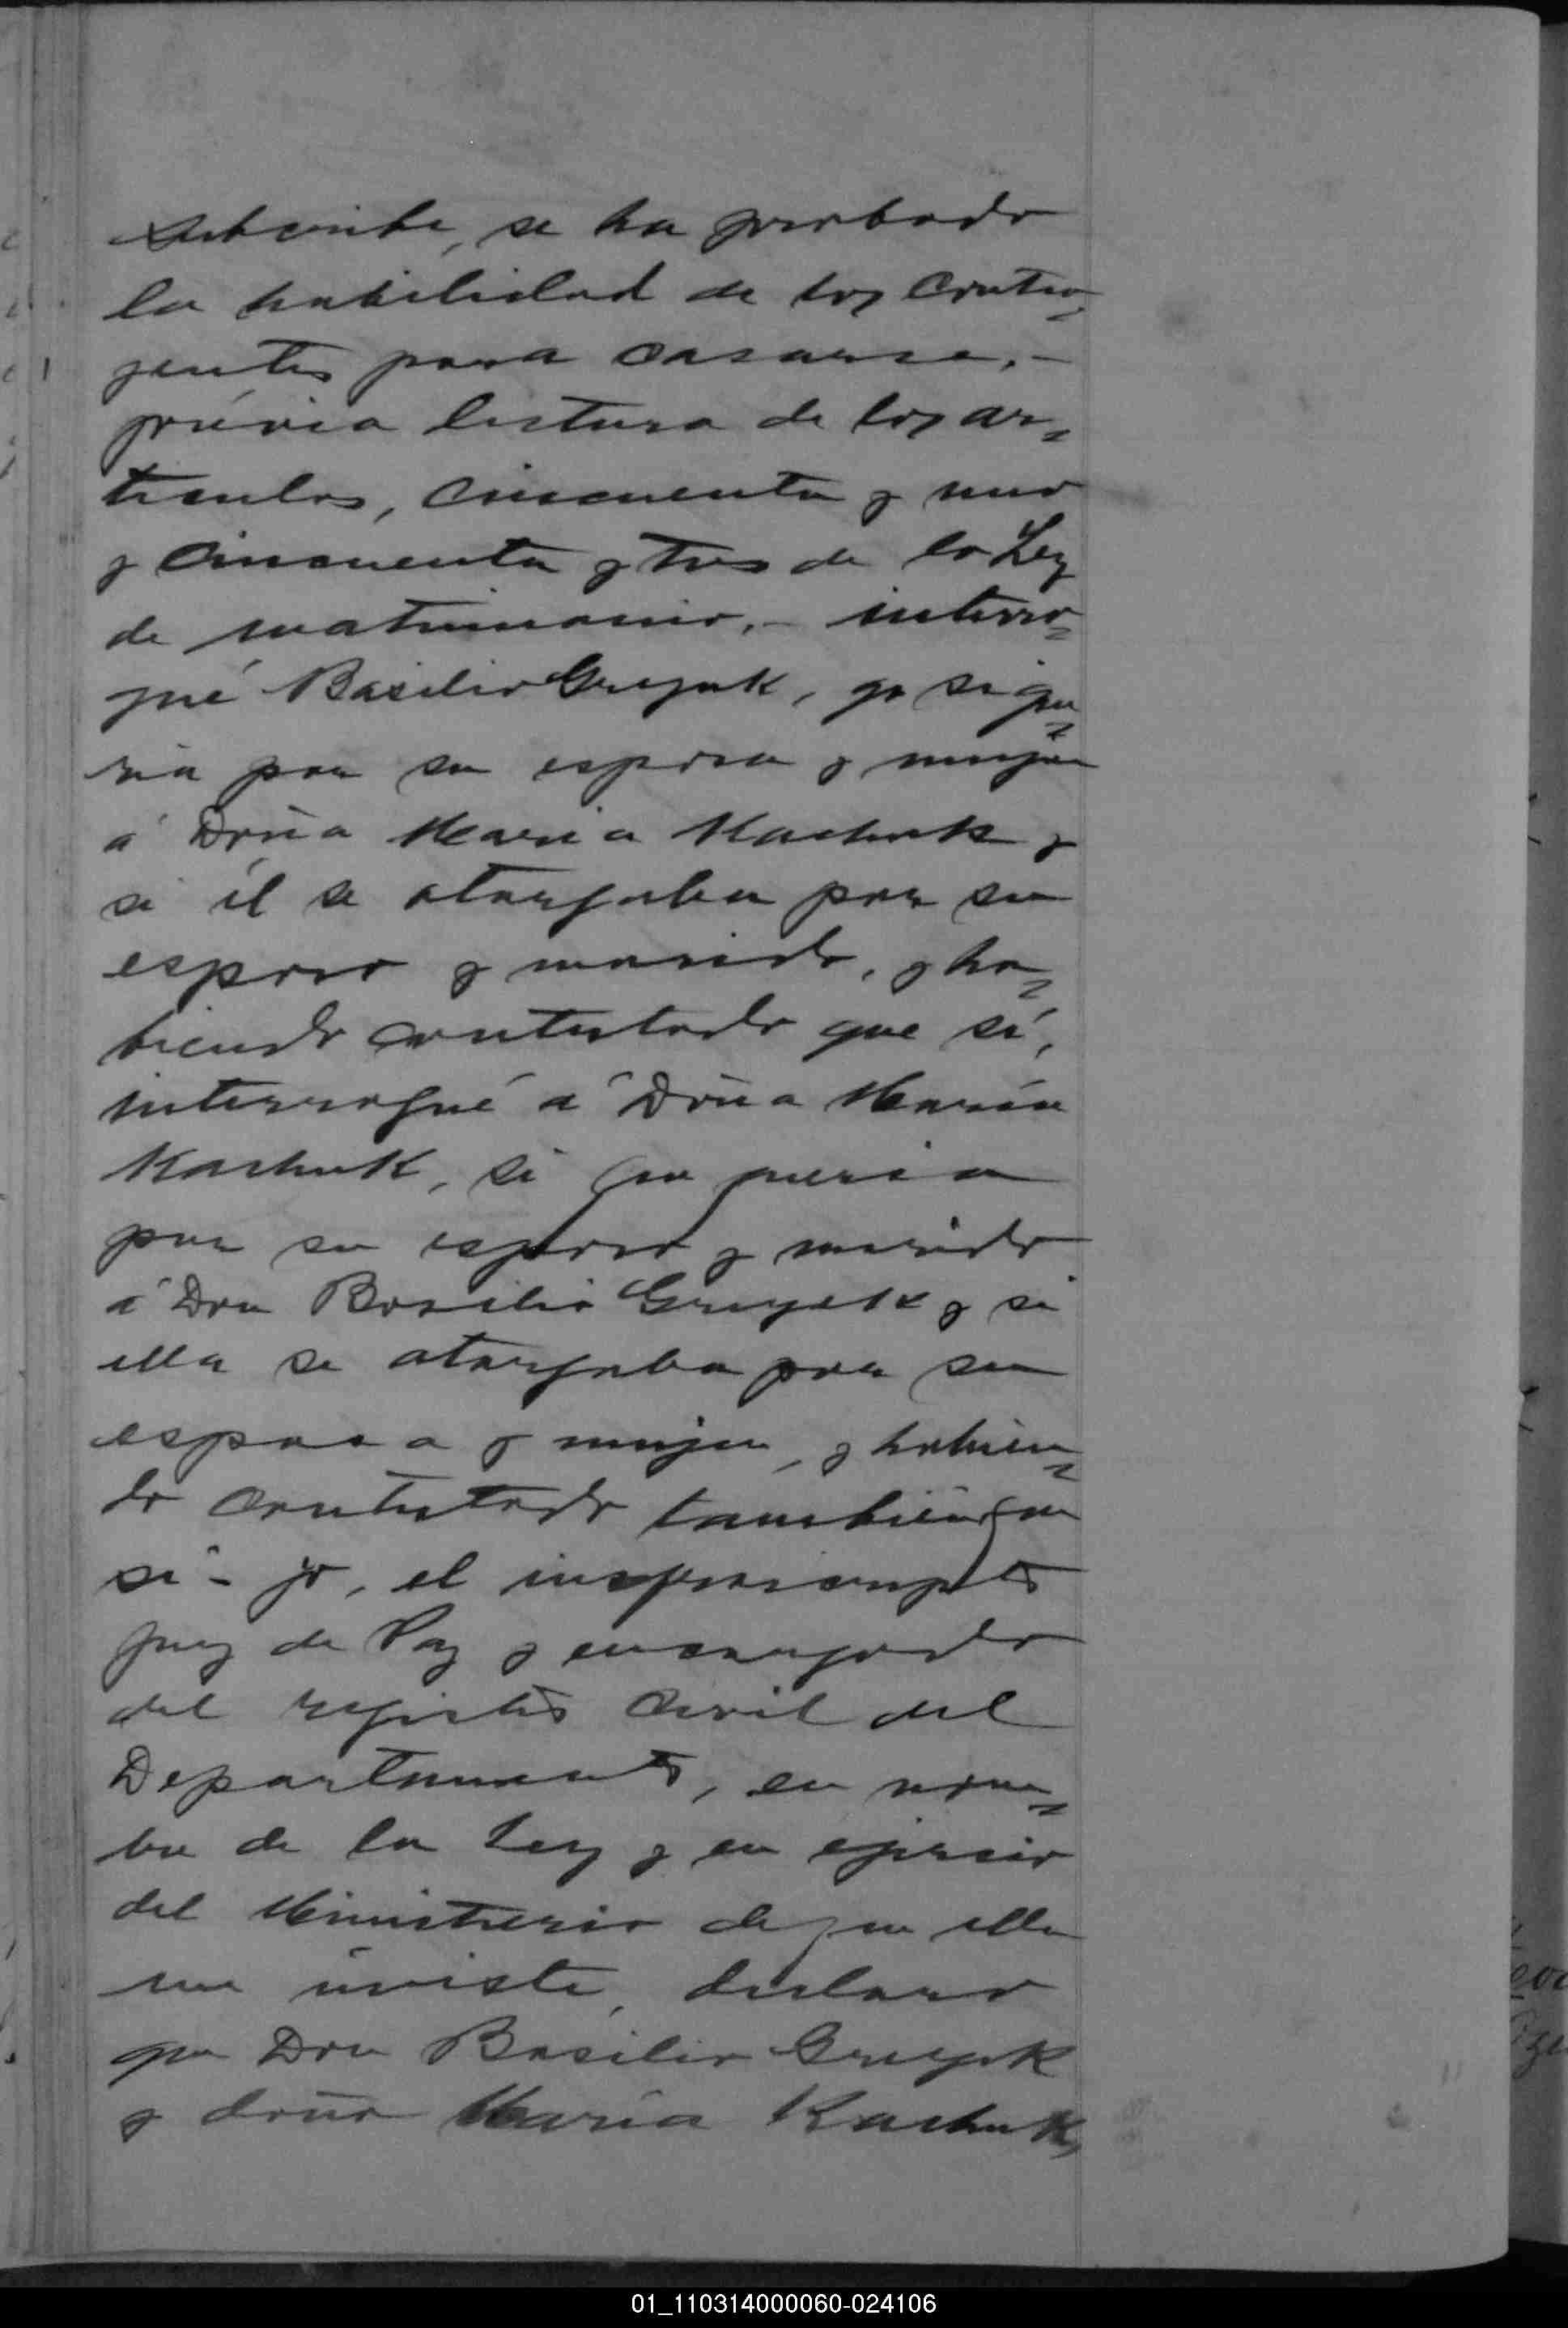 subscribe, se ha probado
la habilidad de los contra=
yentes para casarse.—
prévia lectura de los ar=
ticulos, cincuenta y uno
y cincuenta y tres de la Ley
de matrimonio.— interro=
gué Basilio Greguk, si que=
ria por su esposa y mujer
á Doña Maria Kachuk y
si él se otorgaba por su
esposo y marido, y ha=
biendo contestado que sí,
interrogué á Doña María
Kachuk, si queria
por su esposo y marido
á Don Basilio Greguk y si
ella se otorgaba por su
esposa y mujer, y habien=
do contestado también que
sí - yo, el
Juez de Paz y encargado
del registro Civil del
Departamento, en nom=
bre de la Ley y en ejercicio
del Ministerio de que ella
me inviste, declaro
que Don Basilio Greguk
y doña María Kachuk,
01_110314000060-024106